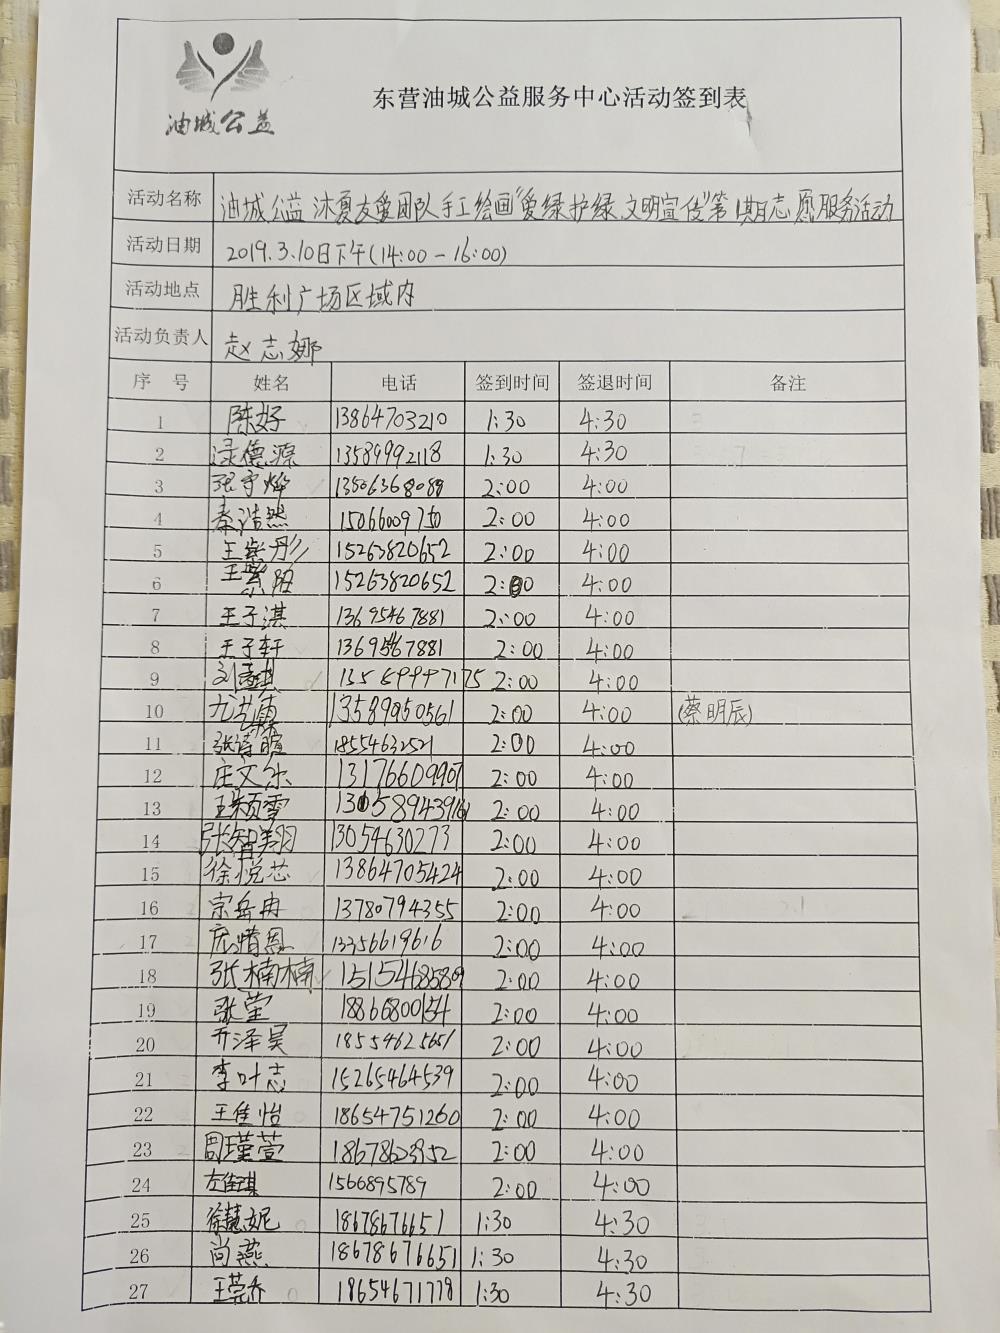 油城公益
东营油城公益服务中心活动签到表
活动名称 油城公益 沐夏友爱团队手工绘画"爱绿护绿 文明宣传"第1期志愿服务活动
活动日期 2019.3.10日下午(14:00-16:00)
活动地点 胜利广场区域内
活动负责人 赵志娜
序 号 姓名 电话 签到时间 签退时间 备注
1 陈好 13864703210 1:30 4:30
2 渌德源 13589992118 1:30 4:30
3 张宇烨 13506368088 2:00 4:00
4 秦浩然 2:00 4:00
5 王紫彤 15263820652 2:00 4:00
6 王紫阳 15263820652 2:00 4:00
7 王子淇 13695467881 2:00 4:00
8 王子轩 13695467881 2:00 4:00
9 2:00 4:00
10 13589950561 2:00 4:00 (蔡明辰)
11 张诗暄 18554632521 2:00 4:00
12 庄文尔 13176609907 2:00 4:00
13 王颖雪 2:00 4:00
14 张智翔 13054630273 2:00 4:00
15 徐悦芯 13864705424 2:00 4:00
16 宗岳冉 13780794355 2:00 4:00
17 13356619616 2:00 4:00
18 张楠楠 15154685809 2:00 4:00
19 张莹 2:00 4:00
20 亓泽昊 18554625651 2:00 4:00
21 李叶志 15265464539 2:00 4:00
22 王佳怡 18654751260 2:00 4:00
23 周瑾萱 2:00 4:00
24 1566895789 2:00 4:00
25 徐慧妮 18678676651 1:30 4:30
26 尚燕 18678676651 1:30 4:30
27 王莞乔 18654671778 1:30 4:30